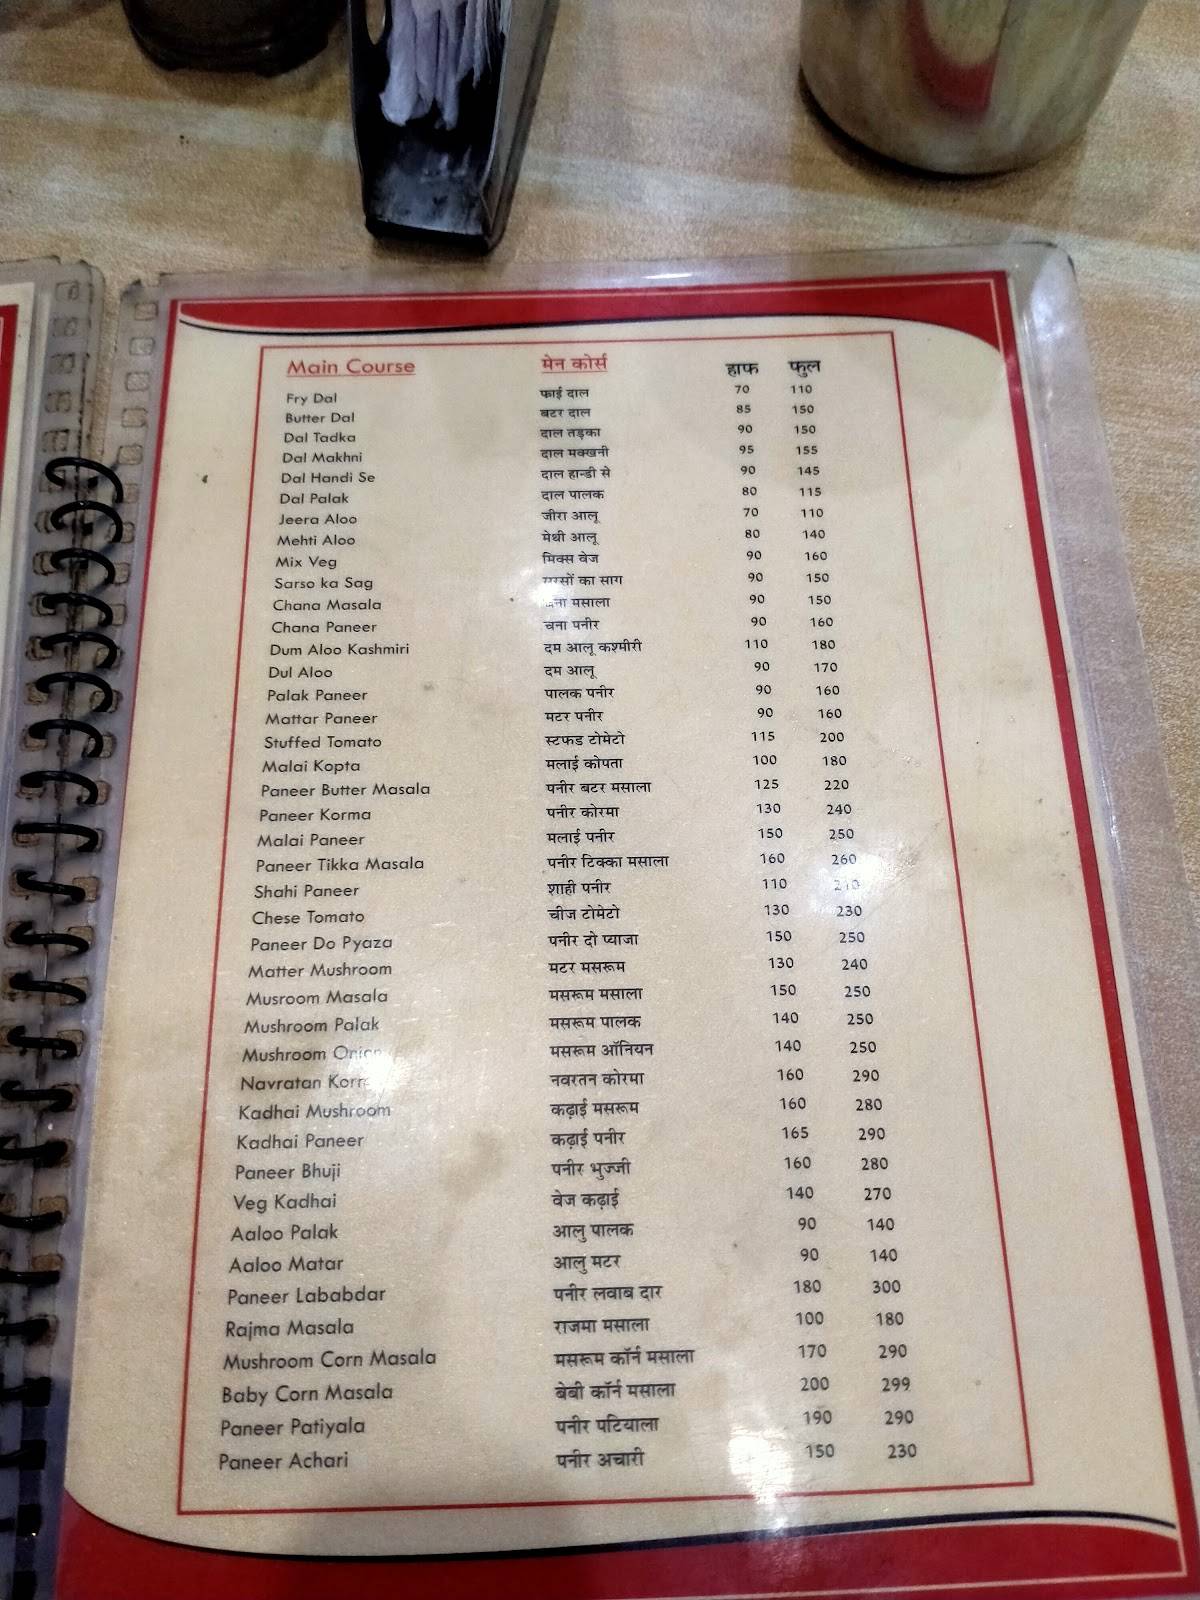 Main Course मेन कोर्स हाफ फुल
Fry Dal फाई दाल 70 110
Butter Dal बटर दाल 85 150
Dal Tadka दाल तड़का 90 150
Dal Makhni दाल मक्खनी 95 155
Dal Handi Se दाल हान्डी से 90 145
Dal Palak दाल पालक 80 115
Jeera Aloo जीरा आलू 70 110
Mehti Aloo मेथी आलू 80 140
Mix Veg मिक्स वेज 90 160
Sarso ka Sag का साग 90 150
Chana Masala मसाला 90 150
Chana Paneer चना पनीर 90 160
Dum Aloo Kashmiri दम आलू कश्मीरी 110 180
Dul Aloo दम आलू 90 170
Palak Paneer पालक पनीर 90 160
Mattar Paneer मटर पनीर 90 160
Stuffed Tomato स्टफड टोमेटो 115 200
Malai Kopta मलाई कोपता 100 180
Paneer Butter Masala पनीर बटर मसाला 125 220
Paneer Korma पनीर कोरमा 130 240
Malai Paneer मलाई पनीर 150 250
Paneer Tikka Masala पनीर टिक्का मसाला 160 260
Shahi Paneer शाही पनीर 110
Chese Tomato चीज टोमेटो 130 230
Paneer Do Pyaza पनीर दो प्याजा 150 250
Matter Mushroom मटर मसरूम 130 240
Musroom Masala मसरूम मसाला 150 250
Mushroom Palak मसरूम पालक 140 250
Mushroom Onion मसरूम ऑनियन 140 250
Navratan नवरतन कोरमा 160 290
Kadhai Mushroom कढ़ाई मसरूम 160 280
Kadhai Paneer कढ़ाई पनीर 165 290
Paneer Bhuji पनीर भुज्जी 160 280
Veg Kadhai वेज कढ़ाई 140 270
Aaloo Palak आलु पालक 90 140
Aaloo Matar आलु मटर 90 140
Paneer Lababdar पनीर लवाब दार 180 300
Rajma Masala राजमा मसाला 100 180
Mushroom Corn Masala मसरूम कॉर्न मसाला 170 290
Baby Corn Masala बेबी कॉर्न मसाला 200 299
Paneer Patiyala पनीर पटियाला 190 290
Paneer Achari पनीर अचारी 150 230